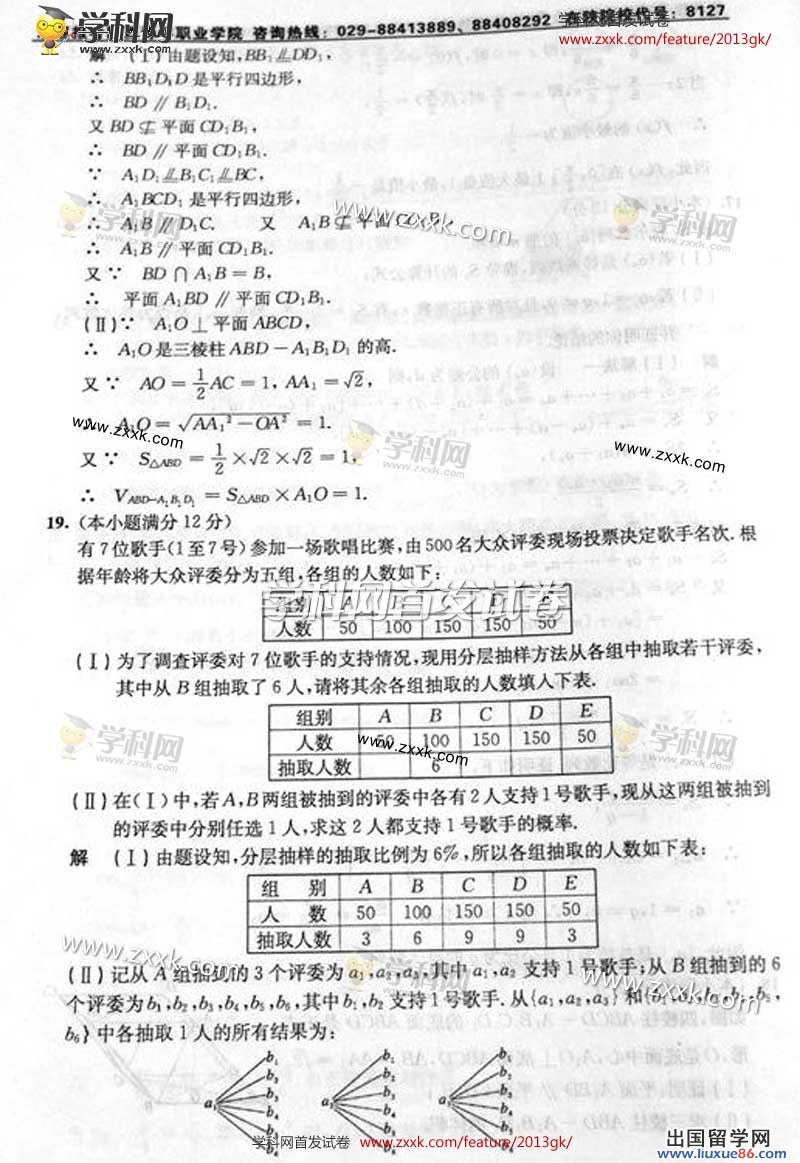 职业学院 咨询热线：029-88413889、88408292 在陕院校代号：8127
学科网首发试卷 www.zxxk.com/feature/2013gk/
解 (Ⅰ)由题设知,BB₁⫫DD₁,
∴ BB₁D₁D是平行四边形,
∴ BD∥B₁D₁.
又BD⊄平面CD₁B₁,
∴ BD∥平面CD₁B₁.
∵ A₁D₁⫫B₁C₁⫫BC,
∴ A₁BCD₁是平行四边形,
∴ A₁B∥D₁C. 又 A₁B⊄平面CD₁B₁,
∴ A₁B∥平面CD₁B₁.
又∵ BD∩A₁B=B,
∴ 平面A₁BD∥平面CD₁B₁.
(Ⅱ)∵ A₁O⊥平面ABCD,
∴ A₁O是三棱柱ABD-A₁B₁D₁的高.
又∵ AO=1/2AC=1,AA₁=√2,
∴ A₁O=√(AA₁²-OA²)=1.
又∵ S△ABD=1/2×√2×√2=1,
∴ V_{ABD-A₁B₁D₁}=S△ABD×A₁O=1.
19.(本小题满分12分)
有7位歌手(1至7号)参加一场歌唱比赛,由500名大众评委现场投票决定歌手名次.根
据年龄将大众评委分为五组,各组的人数如下:
组别 A B C D E
人数 50 100 150 150 50
(Ⅰ)为了调查评委对7位歌手的支持情况,现用分层抽样方法从各组中抽取若干评委,
其中从B组抽取了6人,请将其余各组抽取的人数填入下表.
组别 A B C D E
人数 50 100 150 150 50
抽取人数 6
(Ⅱ)在(Ⅰ)中,若A,B两组被抽到的评委中各有2人支持1号歌手,现从这两组被抽到
的评委中分别任选1人,求这2人都支持1号歌手的概率.
解 (Ⅰ)由题设知,分层抽样的抽取比例为6%,所以各组抽取的人数如下表:
组 别 A B C D E
人 数 50 100 150 150 50
抽取人数 3 6 9 9 3
(Ⅱ)记从A组抽到的3个评委为a₁,a₂,a₃,其中a₁,a₂支持1号歌手;从B组抽到的6
个评委为b₁,b₂,b₃,b₄,b₅,b₆,其中b₁,b₂支持1号歌手.从{a₁,a₂,a₃}和{b₁,b₂,b₃,b₄,b₅,
b₆}中各抽取1人的所有结果为:
b₁ b₁ b₁
b₂ b₂ b₂
b₃ b₃ b₃
b₄ b₄ b₄
b₅ b₅ b₅
b₆ b₆ b₆
学科网首发试卷 www.zxxk.com/feature/2013gk/
学科网
www.zxxk.com
学科网首发试卷
出国留学网
www.liuxue86.com